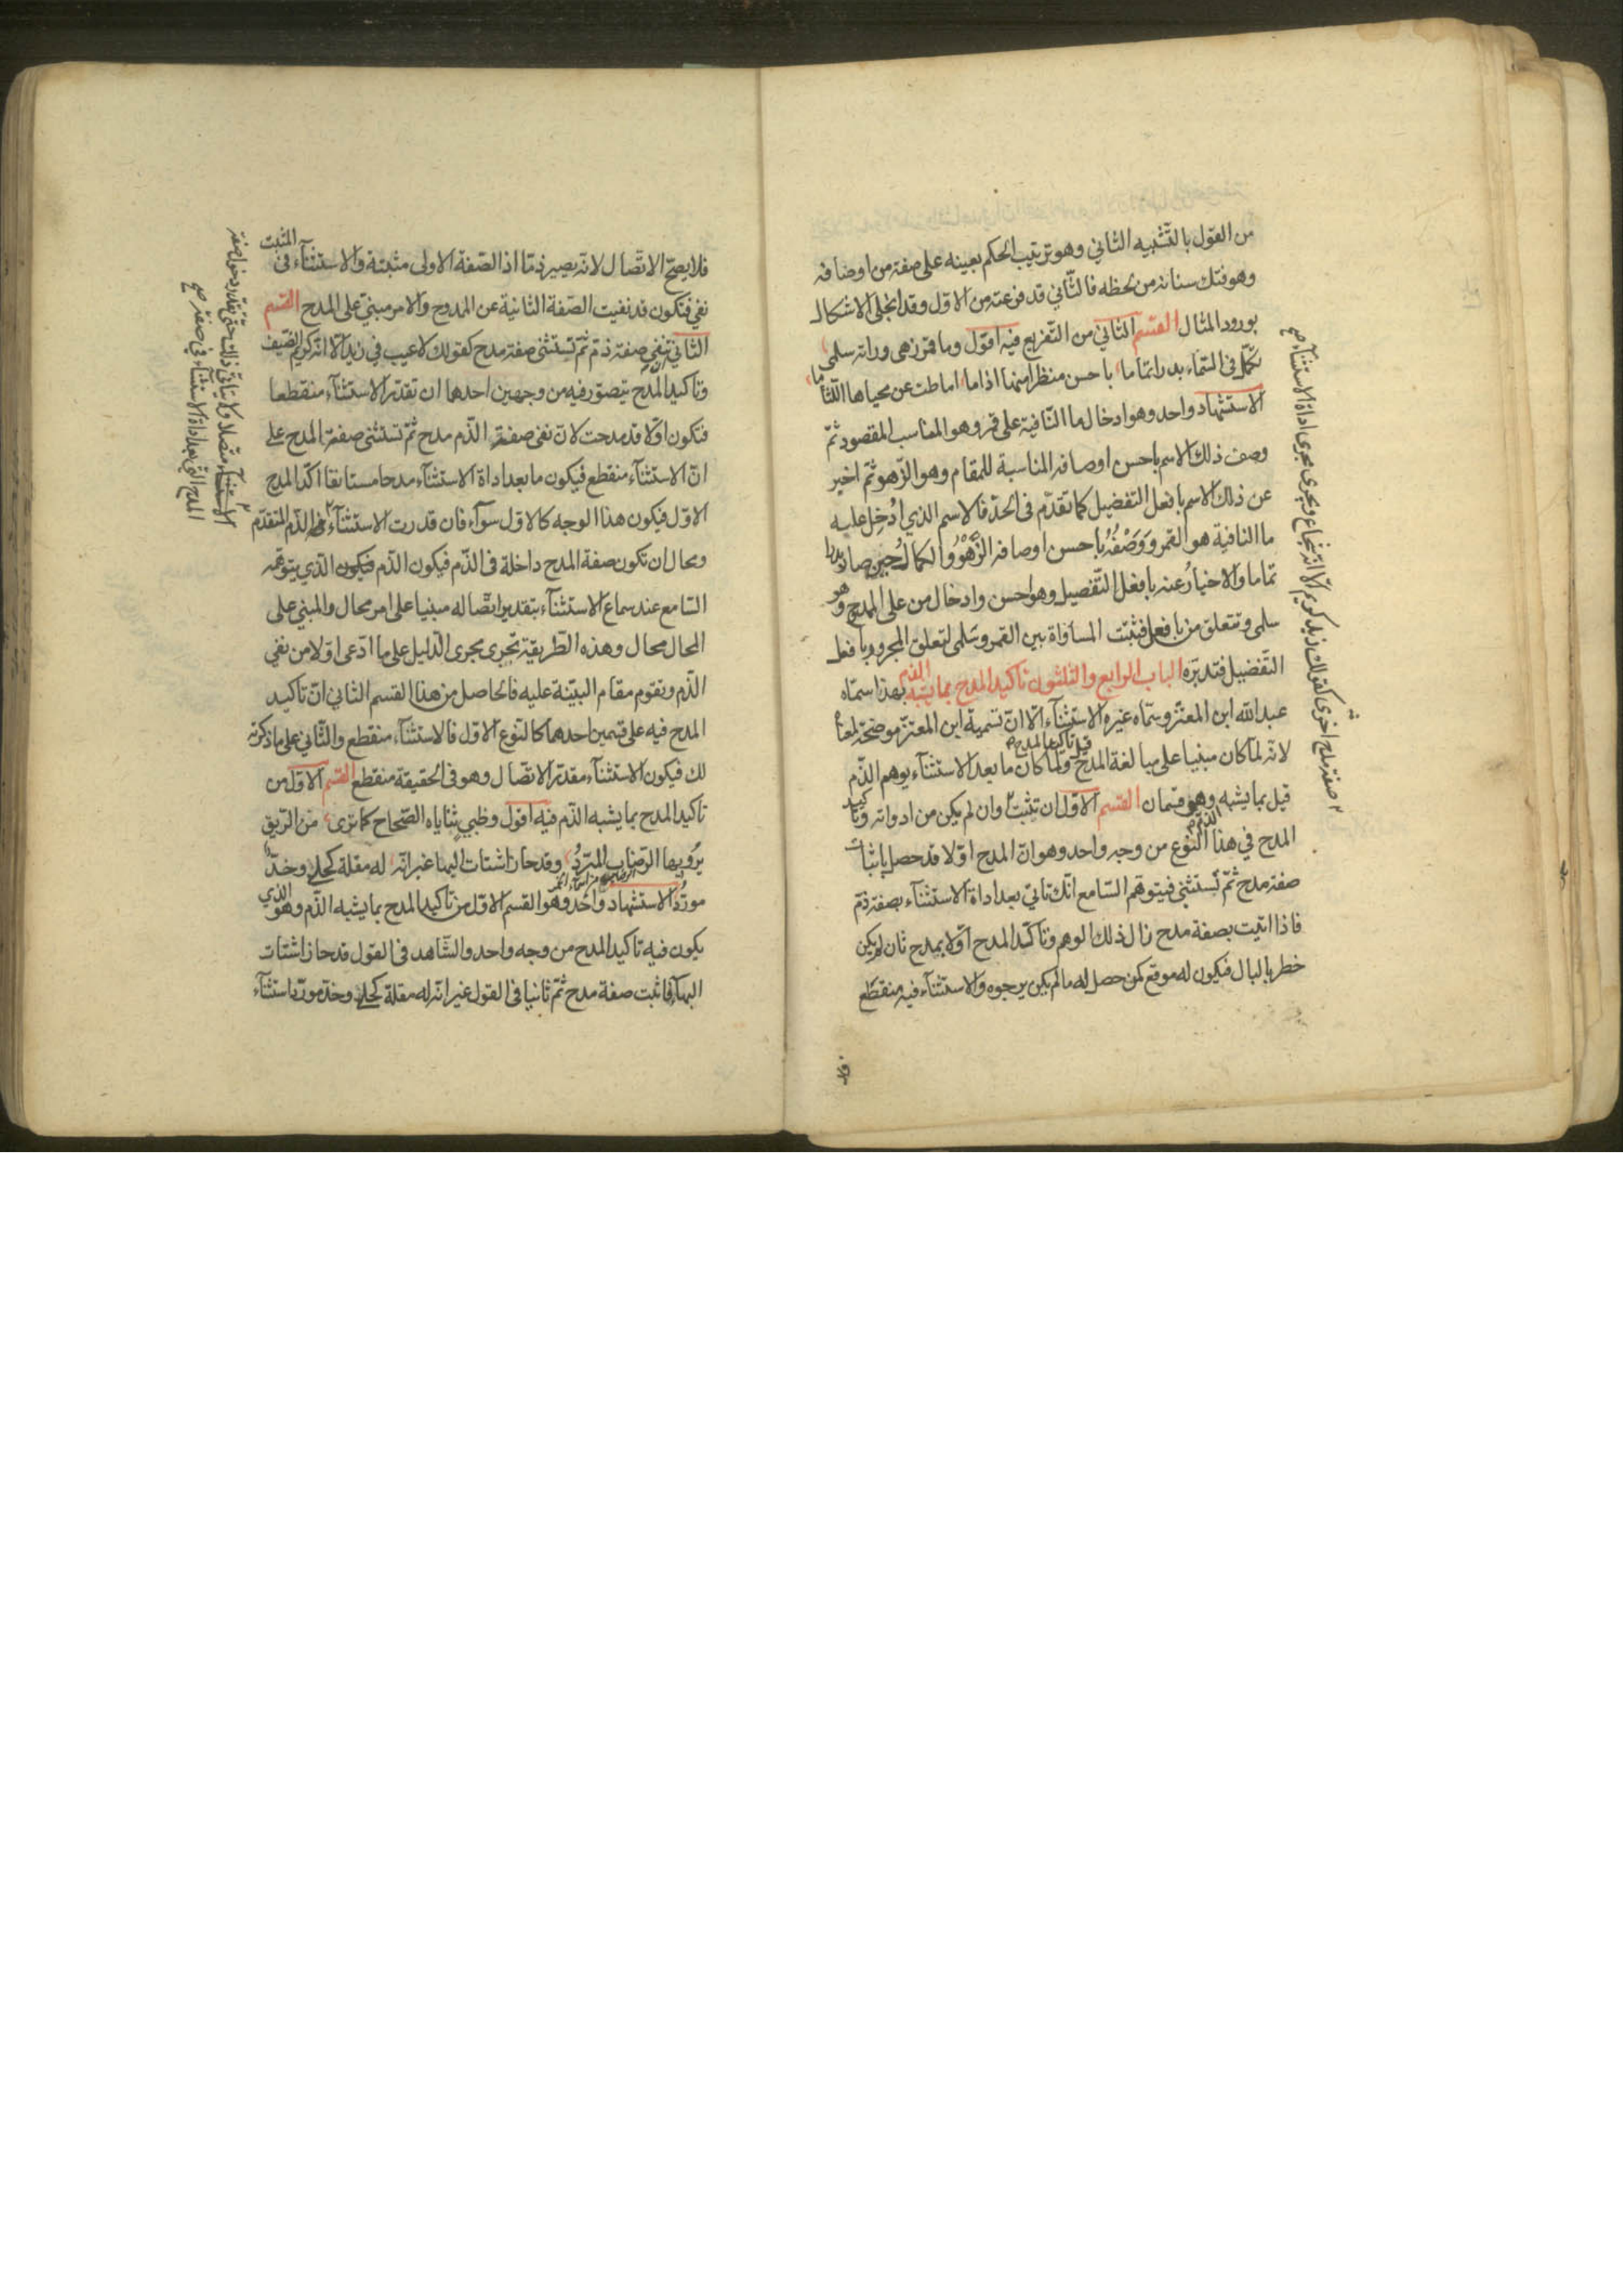 من القول بالتشبيه الثاني وهو ترتيب الحكم بعينه على صفة من اوصافه
وهو فتك سنانه من لحظه فالثاني قد فرعته من الاول وقد انجلى الاشكال
بورود المثال القسم الثاني من التفريع فيه اقول وما قمر زهى ورانه سلمى
تكمّل في السماء بدرا تماما باحسن منظرا منها اذا ما اماطت عن محياها اللثاما
الاستشهاد واحد وهو ادخال ما النافية على قمر وهو المناسب المقصود ثمّ
وصف ذلك الاسم باحسن اوصافه المناسبة للمقام وهو الزهو ثمّ اخبر
عن ذلك الاسم بافعل التفضيل كما تقدّم في الحدّ فالاسم الذي اُدخِل عليه
ما النافية هو القمر وَوَصْفُهُ باحسن اوصافه الزَّهْوُ والكمالُ حين صار بدرا
تماما والاخبارُ عنه بافعل التّفضيل وهو احسن وادخال من على الممدوح وهو
سلمى وتتعلق من بافعل فثبتت المساواة بين القمر وسلمى لتعلق المجرور بافعل
التّفضيل فتدبّره الباب الرابع والثلثون تأكيد المدح بما يشبه الذم بهذا سمّاه
عبدالله ابن المعتزّ وسمّاه غيره الاستثناء الّا انّ تسمية ابن المعتزّ موضحة لمعناه
لانه لمّا كان مبنيا على مبالغة المدح قيل تأكيد المدح ولمّا كان ما بعد الاستثناء يوهم الذّم
قيل بما يشبه الذم وهو قسمان القسم الاوّل ان تثبت وان لم يكن من ادواته وتأكيد
المدح في هذا النّوع من وجه واحد وهو انّ المدح اوّلا قد حصل باثبات
صفة مدح ثمّ تستثني فيتوهم السّامع انّك تاتي بعد اداة الاستثناء بصفة ذم
فاذا اتيت بصفة مدح زال ذلك الوهم وتأكّد المدح اوّلا بمدح ثان لم يكن
خطر بالبال فيكون له موقع كمن حصل له ما لم يكن يرجوه والاستثناء فيه منقطع
فلا
صفة مدح اخرى كقولك زيد كريم الّا انّه شجاع ويجرى مجرى اداة الاستثناء صح
فلا يصحّ الاتّصال لانه يصير ذمّا اذ الصّفة الاولى مثبتة والاستثناء في المثبت
نفي فتكون قد نفيت الصّفة الثانية عن الممدوح والامر مبنيّ على المدح القسم
الثاني تنفي صفة ذمّ ثمّ تستثني صفة مدح كقولك لا عيب في زيد الّا انّه كريم الضّيف
وتأكيد المدح يتصوّر فيه من وجهين احدهما ان تقدّر الاستثناء منقطعا
فتكون اوّلا قد مدحت لانّ نفي صفة الذّم مدح ثمّ تستثني صفة المدح على
انّ الاستثناء منقطع فيكون ما بعد اداة الاستثناء مدحا مستانفا اكّد المدح
الاوّل فيكون هذا الوجه كالاوّل سوآء فان قدرت الاستثناء في الذّم المتقدّم
ومحال ان تكون صفة المدح داخلة في الذّم فيكون الذّم فيكون الذّي يتوهّمه
السّامع عند سماع الاستثناء بتقدير اتّصاله مبنيا على امر محال والمبني على
المحال محال وهذه الطّريقة تجرى مجرى الدّليل على ما ادّعى اوّلا من نفي
الذّم وتقوم مقام البيّنة عليه فالحاصل من هذا القسم الثاني انّ تاكيد
المدح فيه على قسمين احدهما كالنّوع الاوّل فالاستثناء منقطع والثّاني على ما ذكرته
لك فيكون الاستثناء مقدّر الاتّصال وهو في الحقيقة منقطع القسم الاوّل من
تاكيد المدح بما يشبه الذّم فيه اقول وظبي ثناياه الصّحاح كما ترى من الرّيق
يرويها الرّضاب المبرّدُ وقد حاز اشتات البها غير انّه له مقلة كحلى وخدّ
مورّدُ الاستشهاد واحد وهو القسم الاوّل من تأكيد المدح بما يشبه الذّم وهو الذي
يكون فيه تاكيد المدح من وجه واحد والشّاهد في القول قد حاز اشتات
البهآء فاثبت صفة مدح ثمّ ثانيا في القول غير انّه له مقلة كحلى وخدّ مورّد استثناء
الاستثناء متصلا ولا يتأتى ذلك حتى تقدّر دخول صفة
المدح التي بعد اداة الاستثناء في صفة صح